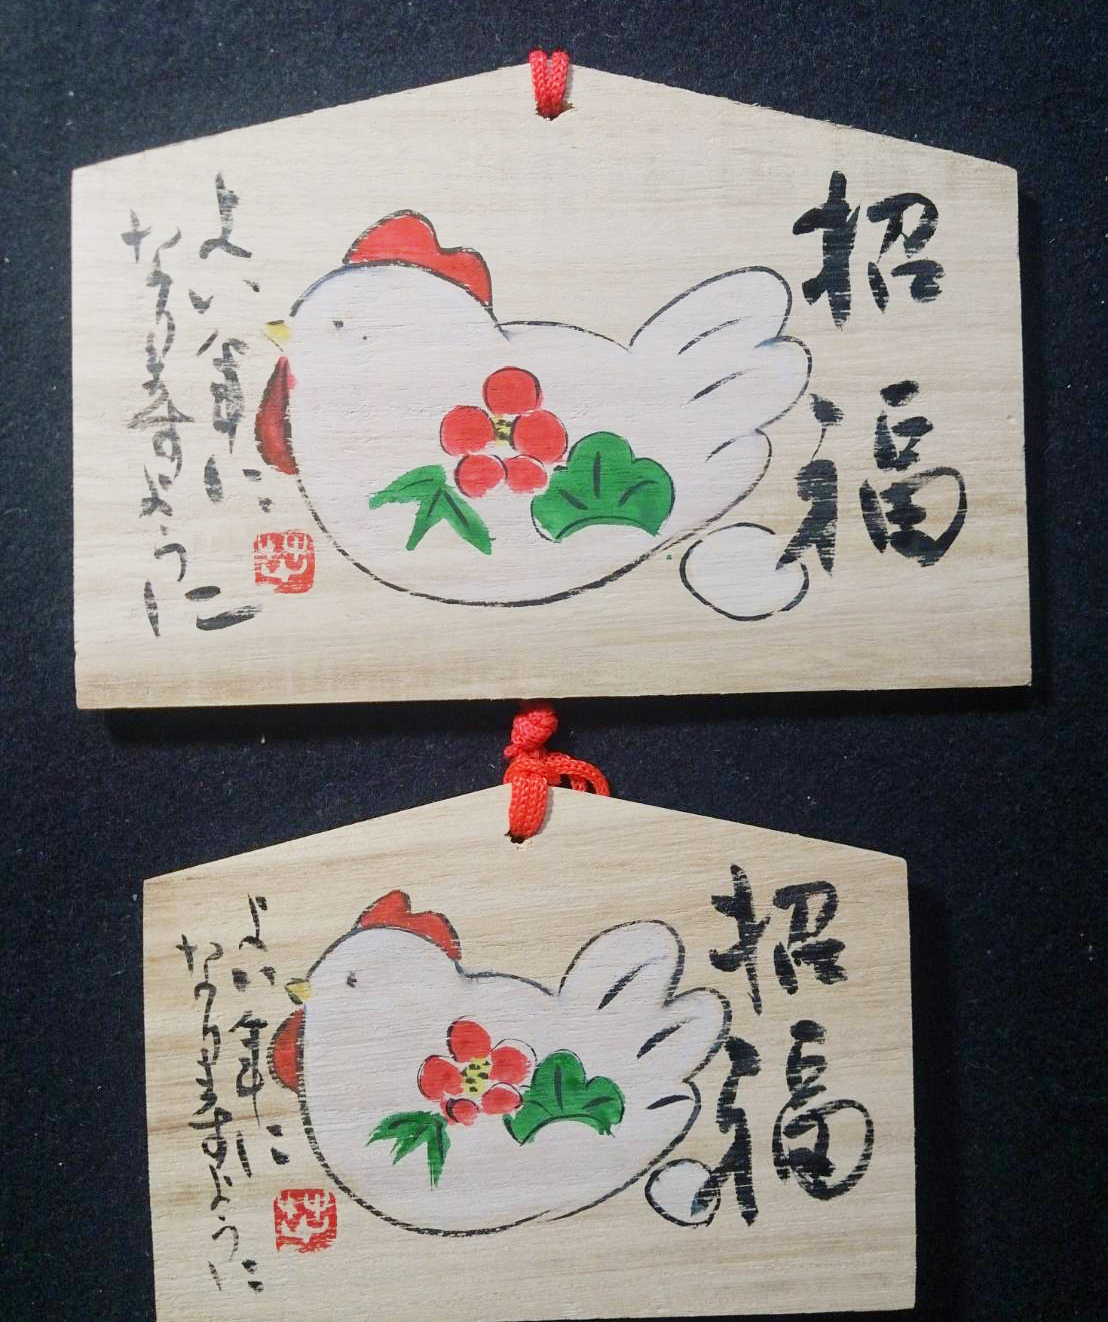 招福
よい年に
なりますように
招福
よい年に
なりますように